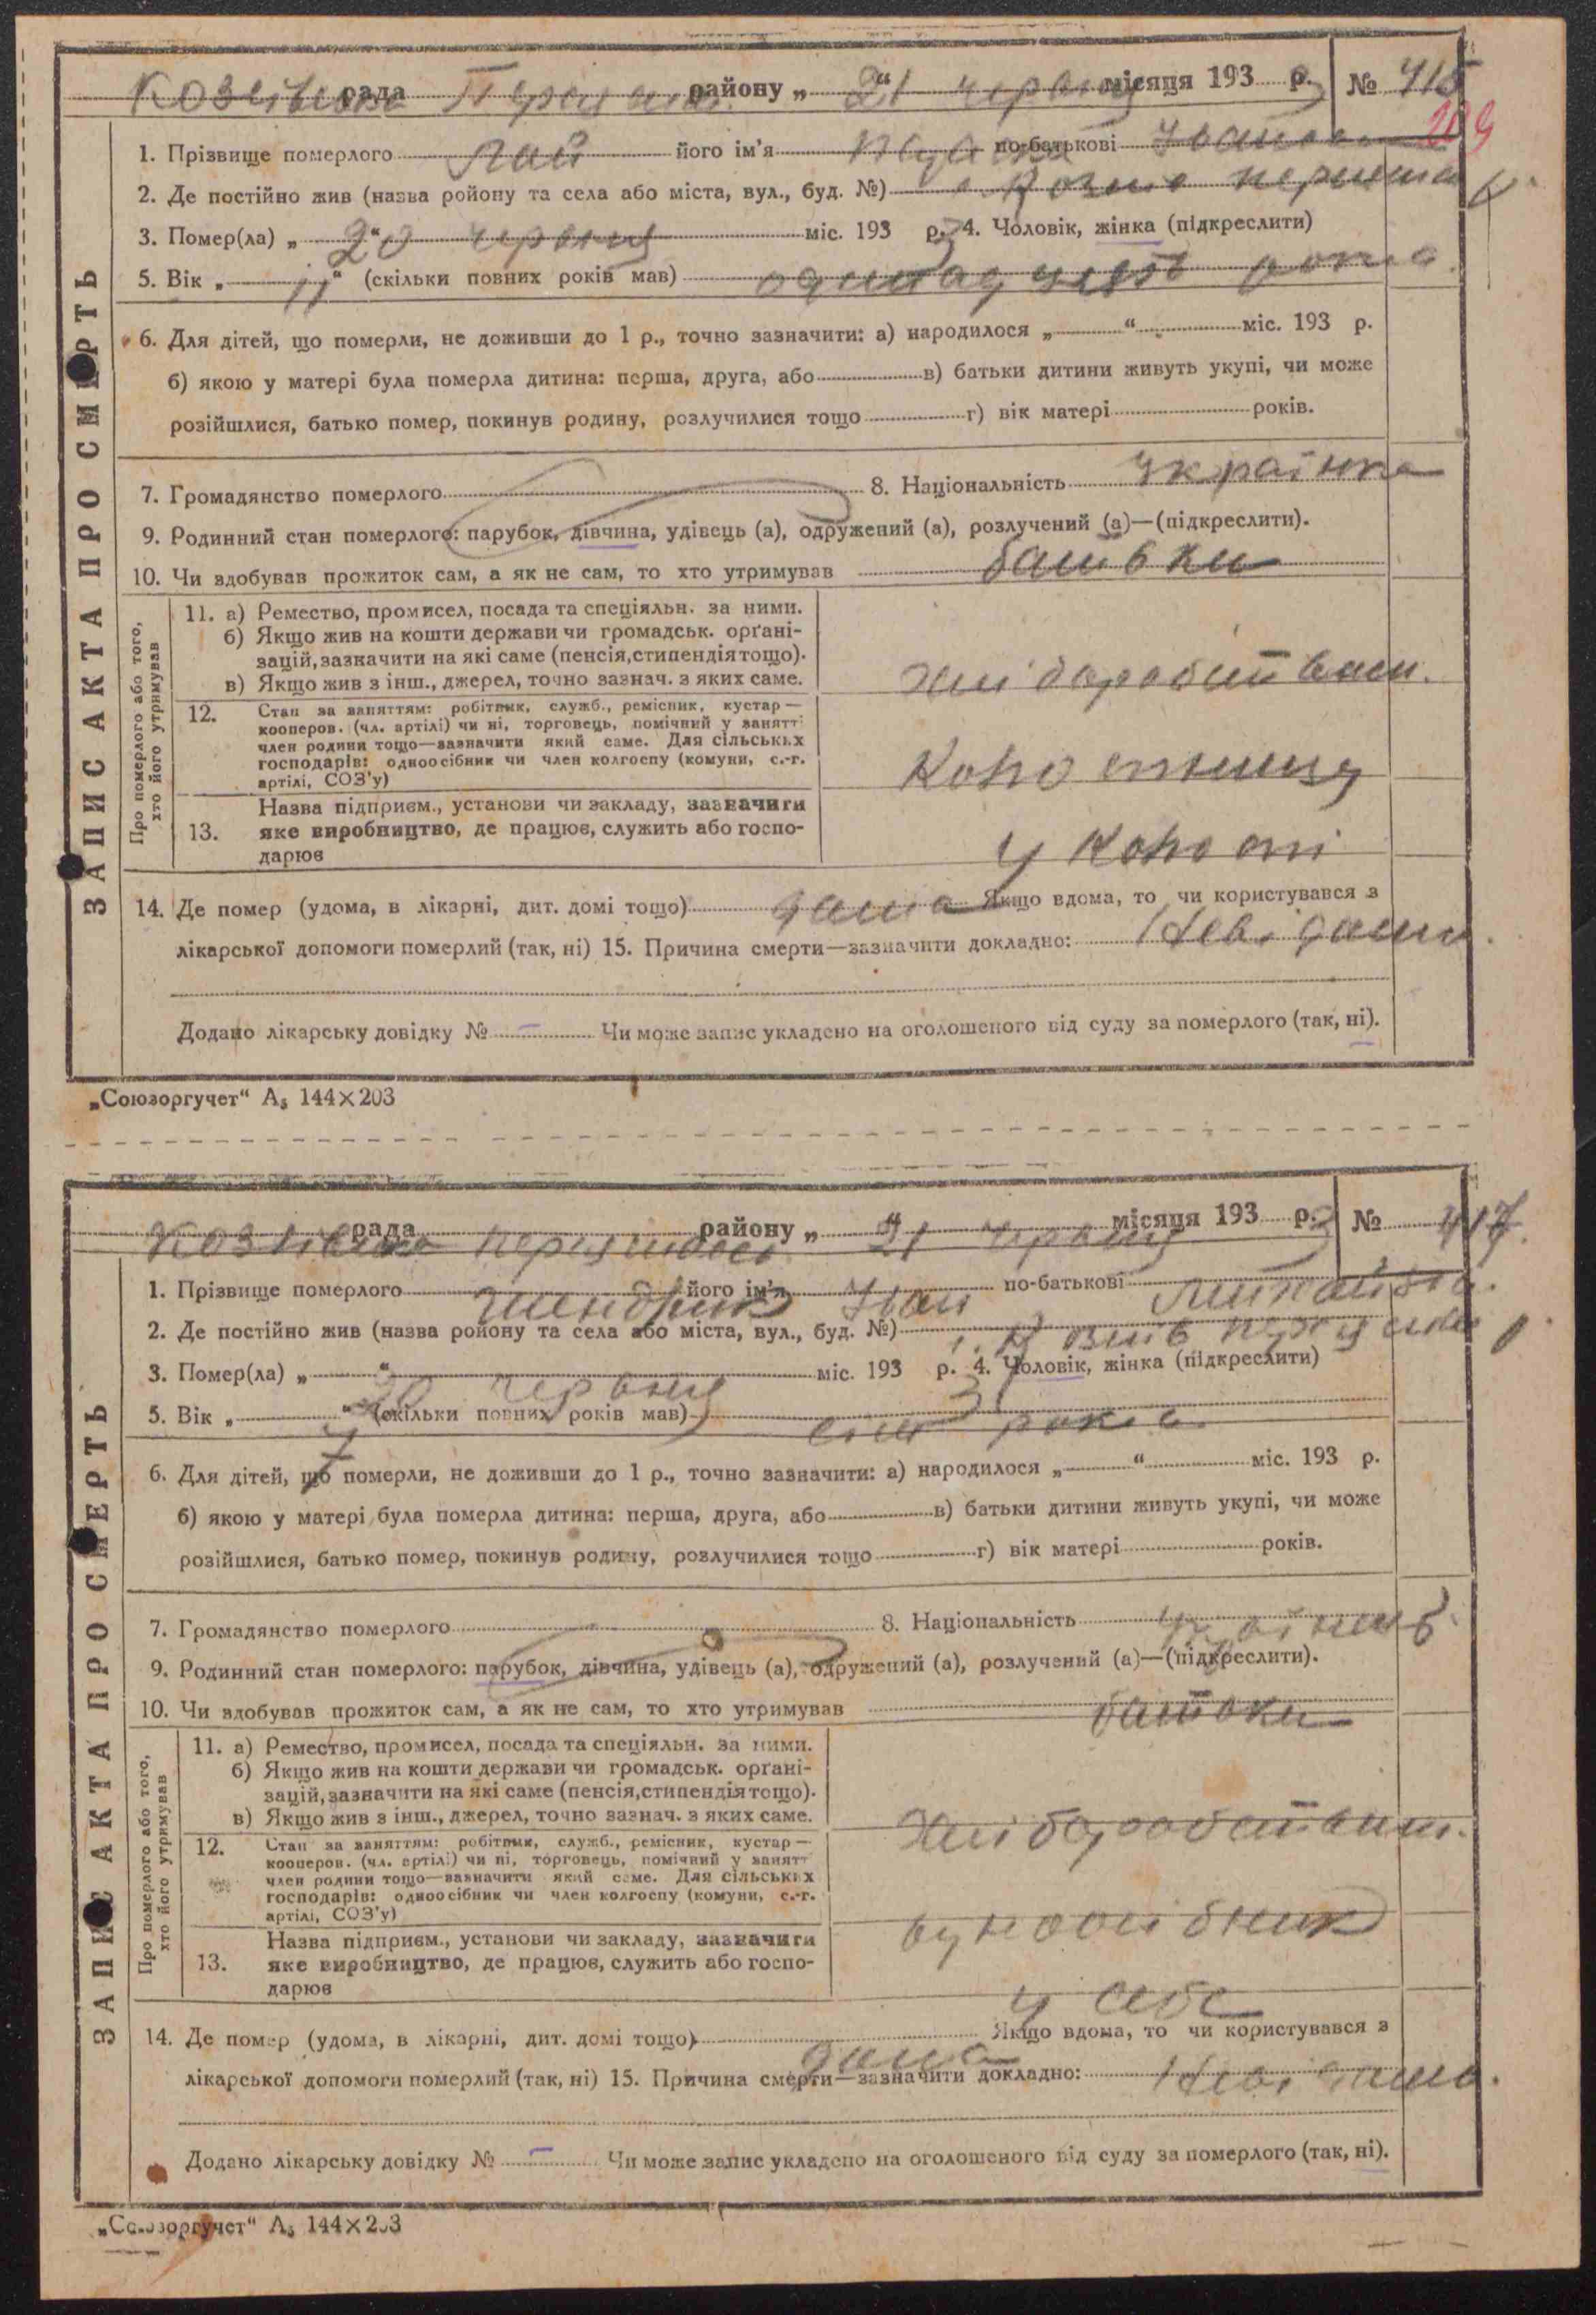 рада району „ 21 “ червня місяця 193 3 р. № 415
209
1. Прізвище померлого його ім’я по-батькові
2. Де постійно жив (назва ройону та села або міста, вул., буд. №)
3. Помер(ла) „ 20 “ червня міс. 193 3 р. 4. Чоловік, жінка (підкреслити)
5. Вік „ 11 “ (скільки повних років мав) одинадцять років
6. Для дітей, що померли, не доживши до 1 р., точно зазначити: а) народилося „ “ міс. 193 р.
б) якою у матері була померла дитина: перша, друга, або в) батьки дитини живуть укупі, чи може
розійшлися, батько помер, покинув родину, розлучилися тощо г) вік матері років.
7. Громадянство померлого 8. Національність Українка
9. Родинний стан померлого: парубок, дівчина, удівець (а), одружений (а), розлучений (а)—(підкреслити).
10. Чи здобував прожиток сам, а як не сам, то хто утримував батьки
ЗАПИС АКТА ПРО СМЕРТЬ
Про померлого або того, хто його утримував
11. а) Ремество, промисел, посада та спеціяльн. за ними.
б) Якщо жив на кошти держави чи громадськ. орґані-
зацій, зазначити на які саме (пенсія, стипендія тощо).
в) Якщо жив з інш., джерел, точно зазнач. з яких саме.
12. Стан за заняттям: робітник, служб., ремісник, кустар—
кооперов. (чл. артілі) чи ні, торговець, помічний у занятті
член родини тощо—зазначити який саме. Для сільських
господарів: одноосібник чи член колгоспу (комуни, с.-г.
артілі, СОЗ’у)
Назва підприєм., установи чи закладу, зазначити
13. яке виробництво, де працює, служить або госпо-
дарює
14. Де помер (удома, в лікарні, дит. домі тощо) дома Якщо вдома, то чи користувався з
лікарської допомоги померлий (так, ні) 15. Причина смерти—зазначити докладно: Невідомо
Додано лікарську довідку № — Чи може запис укладено на оголошеного від суду за померлого (так, ні).
„Союзоргучет“ А₅ 144×203
рада району „ 21 “ червня місяця 193 3 р. № 417
1. Прізвище померлого його ім’я Іван по-батькові
2. Де постійно жив (назва ройону та села або міста, вул., буд. №)
3. Помер(ла) „ 20 “ червня міс. 193 3 р. 4. Чоловік, жінка (підкреслити)
5. Вік „ 7 “ (скільки повних років мав) сім років
6. Для дітей, що померли, не доживши до 1 р., точно зазначити: а) народилося „ “ міс. 193 р.
б) якою у матері була померла дитина: перша, друга, або в) батьки дитини живуть укупі, чи може
розійшлися, батько помер, покинув родину, розлучилися тощо г) вік матері років.
7. Громадянство померлого 8. Національність
9. Родинний стан померлого: парубок, дівчина, удівець (а), одружений (а), розлучений (а)—(підкреслити).
10. Чи здобував прожиток сам, а як не сам, то хто утримував батьки
ЗАПИС АКТА ПРО СМЕРТЬ
Про померлого або того, хто його утримував
11. а) Ремество, промисел, посада та спеціяльн. за ними.
б) Якщо жив на кошти держави чи громадськ. орґані-
зацій, зазначити на які саме (пенсія, стипендія тощо).
в) Якщо жив з інш., джерел, точно зазнач. з яких саме.
12. Стан за заняттям: робітник, служб., ремісник, кустар—
кооперов. (чл. артілі) чи ні, торговець, помічний у занятті
член родини тощо—зазначити який саме. Для сільських
господарів: одноосібник чи член колгоспу (комуни, с.-г.
артілі, СОЗ’у)
Назва підприєм., установи чи закладу, зазначити
13. яке виробництво, де працює, служить або госпо-
дарює
у себе
14. Де помер (удома, в лікарні, дит. домі тощо) дома Якщо вдома, то чи користувався з
лікарської допомоги померлий (так, ні) 15. Причина смерти—зазначити докладно: Невідомо.
Додано лікарську довідку № — Чи може запис укладено на оголошеного від суду за померлого (так, ні).
„Союзоргучет“ А₅ 144×203